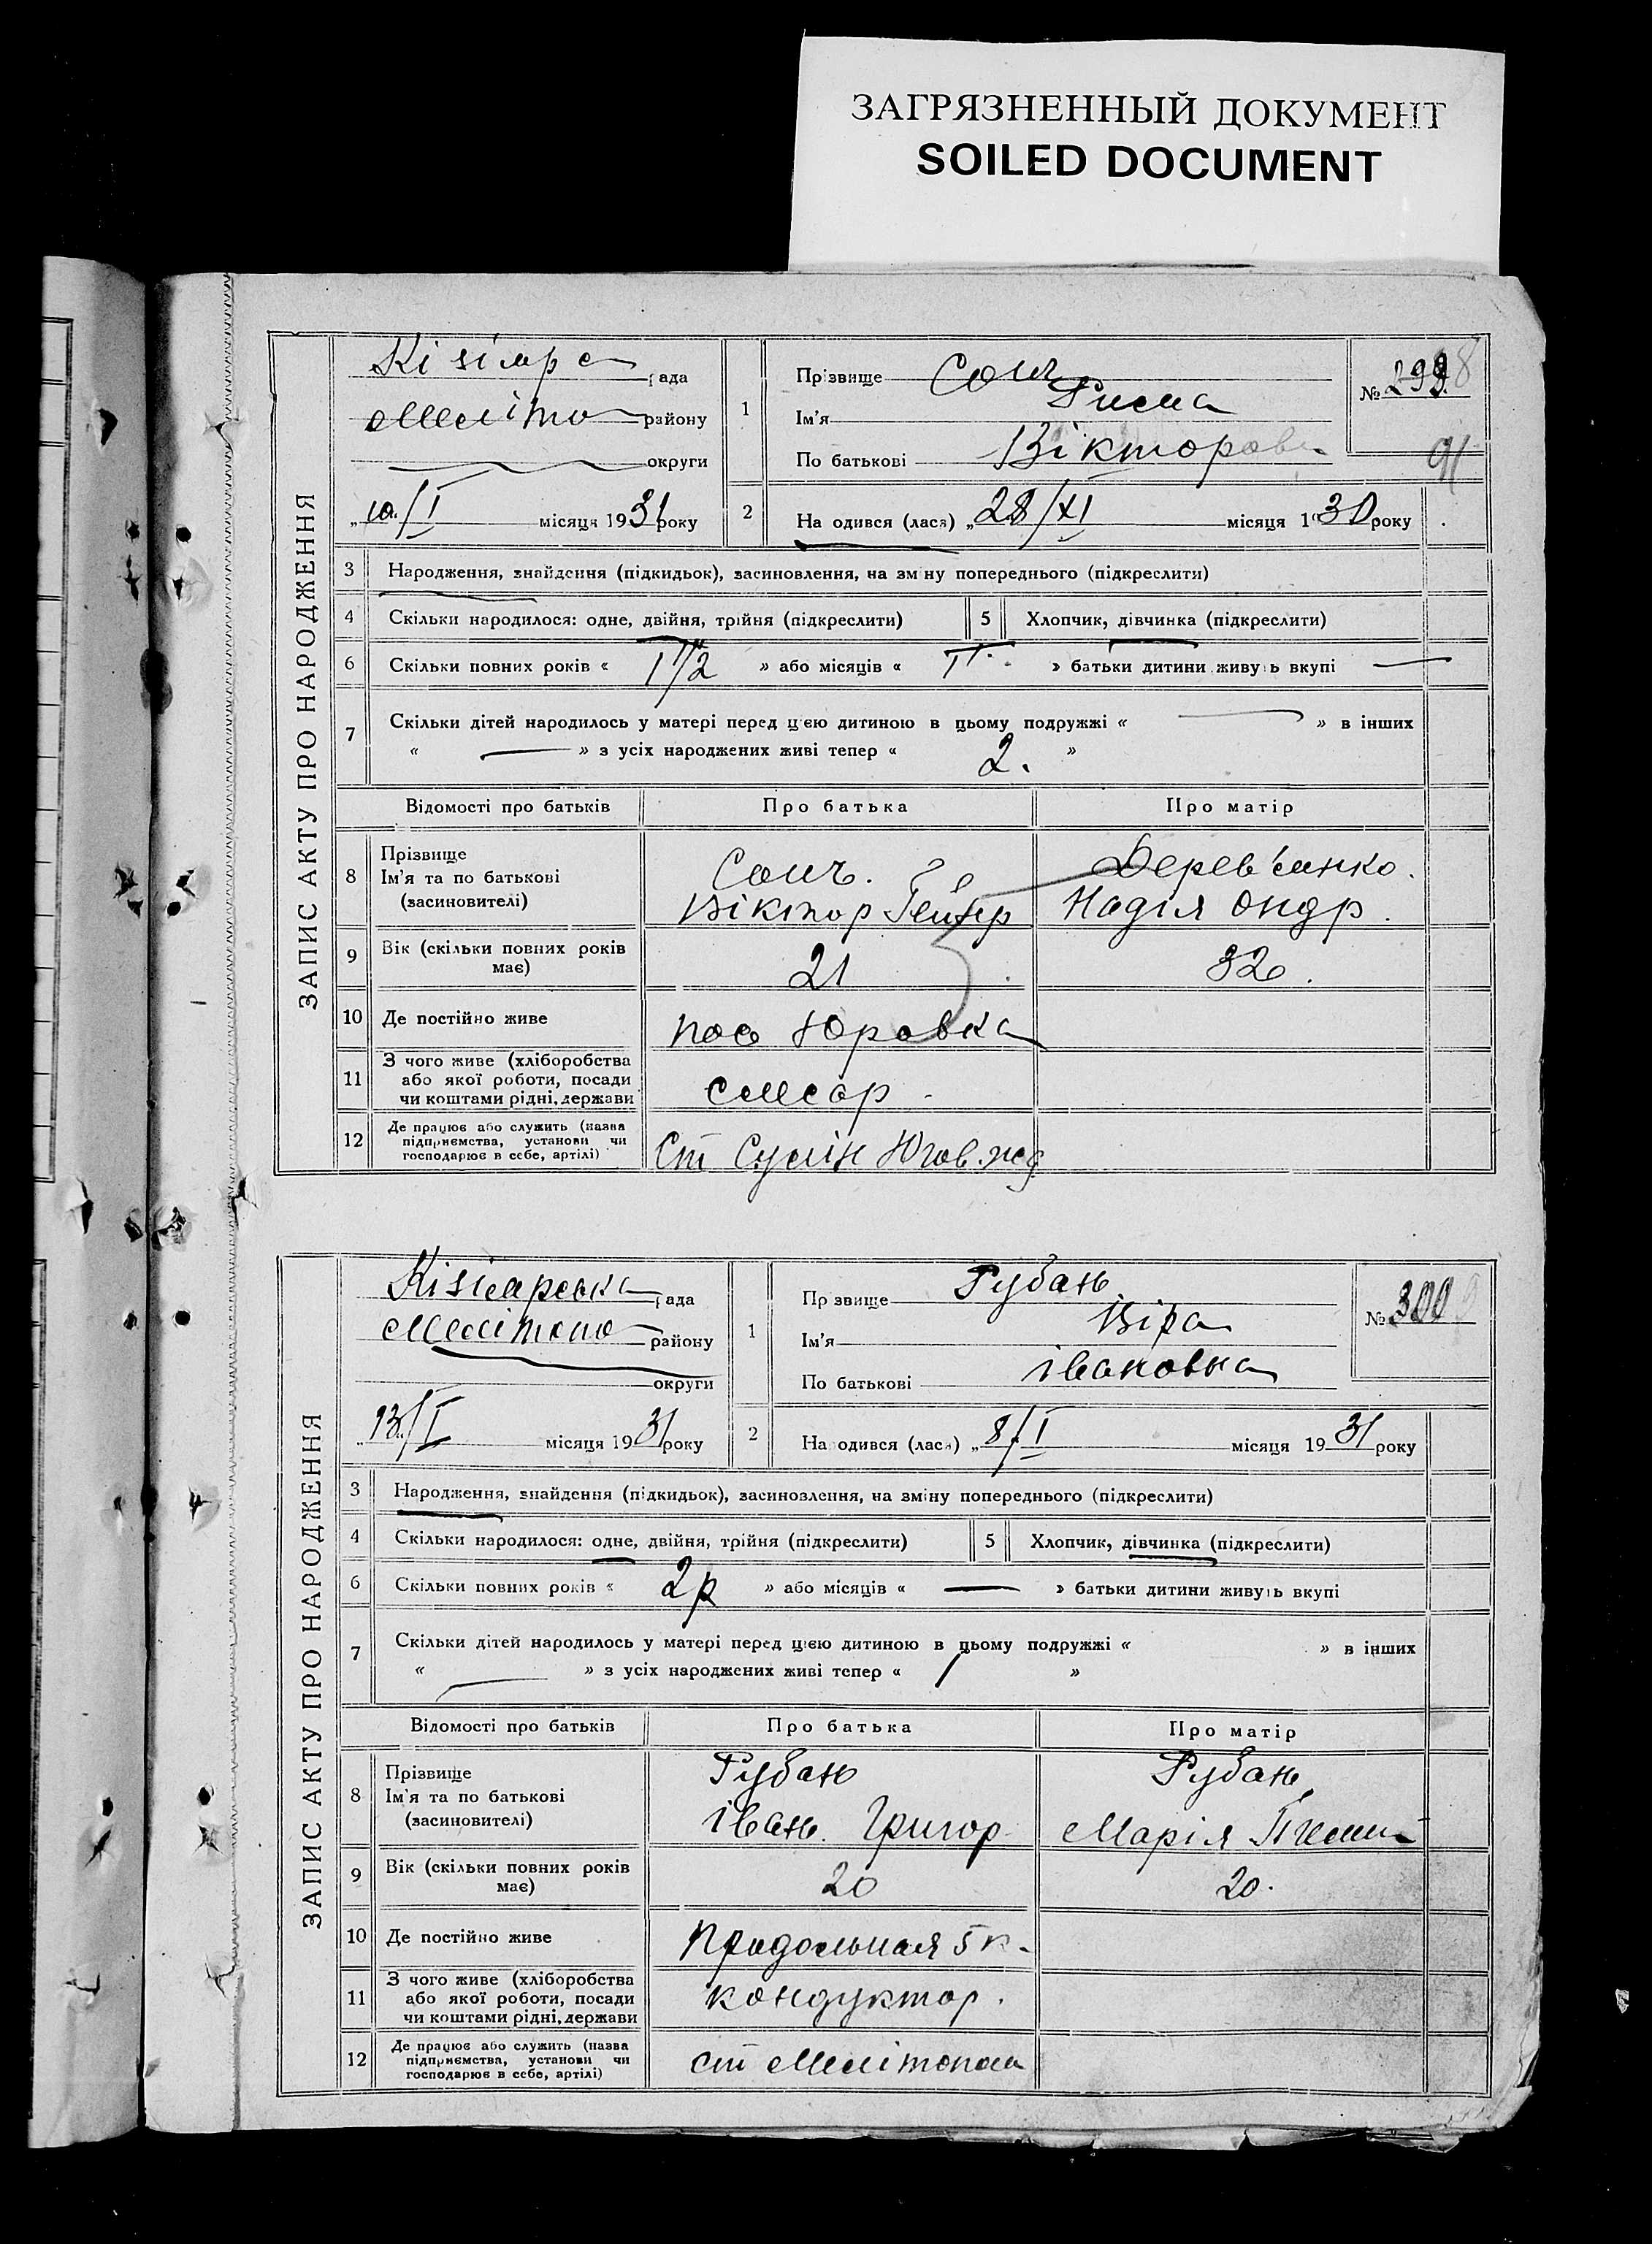 ЗАГРЯЗНЕННЫЙ ДОКУМЕНТ
SOILED DOCUMENT
ЗАПИС АКТУ ПРО НАРОДЖЕННЯ
рада
району
округи
„10/I місяця 1931 року
1
Прізвище
Ім'я Рима
По батькові Вікторовн
№ 299
91
2
На одився (лася) „28/XI місяця 1930 року
3 Народження, знайдення (підкидьок), засиновлення, на зм ну попереднього (підкреслити)
4 Скільки народилося: одне, двійня, трійня (підкреслити) 5 Хлопчик, дівчинка (підкреслити)
6 Скільки повних років « » або місяців « » батьки дитини живуть вкупі —
7 Скільки дітей народилось у матері перед цією дитиною в цьому подружжі « — » в інших
« — » з усіх народжених живі тепер « 2. »
Відомості про батьків Про батька Про матір
8 Прізвище
Ім'я та по батькові
(засиновителі)
Дерев'янко.
Віктор
Надія Андр.
9 Вік (скільки повних років має) 21
10 Де постійно живе пос Юровка
11 З чого живе (хліборобства або якої роботи, посади чи коштами рідні, держави слюсар.
12 Де працює або служить (назва підприємства, установи чи господарює в себе, артілі) Ст
ЗАПИС АКТУ ПРО НАРОДЖЕННЯ
Кізіярська рада
Мелітопо району
округи
„13/I місяця 1931 року
1
Пр звище Рубань
Ім'я Віра
По батькові Івановна
№ 300
2
На одився (лася) „8/I місяця 1931 року
3 Народження, знайдення (підкидьок), засиновлення, на зміну попереднього (підкреслити)
4 Скільки народилося: одне, двійня, трійня (підкреслити) 5 Хлопчик, дівчинка (підкреслити)
6 Скільки повних років « 2р » або місяців « — » батьки дитини живуть вкупі
7 Скільки дітей народилось у матері перед цією дитиною в цьому подружжі « » в інших
« — » з усіх народжених живі тепер « 1 »
Відомості про батьків Про батька Про матір
8 Прізвище
Ім'я та по батькові
(засиновителі)
Рубань
Іван. Григор
Рубань
Марія
9 Вік (скільки повних років має) 20 20.
10 Де постійно живе Продольная 5 к.
11 З чого живе (хліборобства або якої роботи, посади чи коштами рідні, держави кондуктор.
12 Де працює або служить (назва підприємства, установи чи господарює в себе, артілі) ст Мелітополь